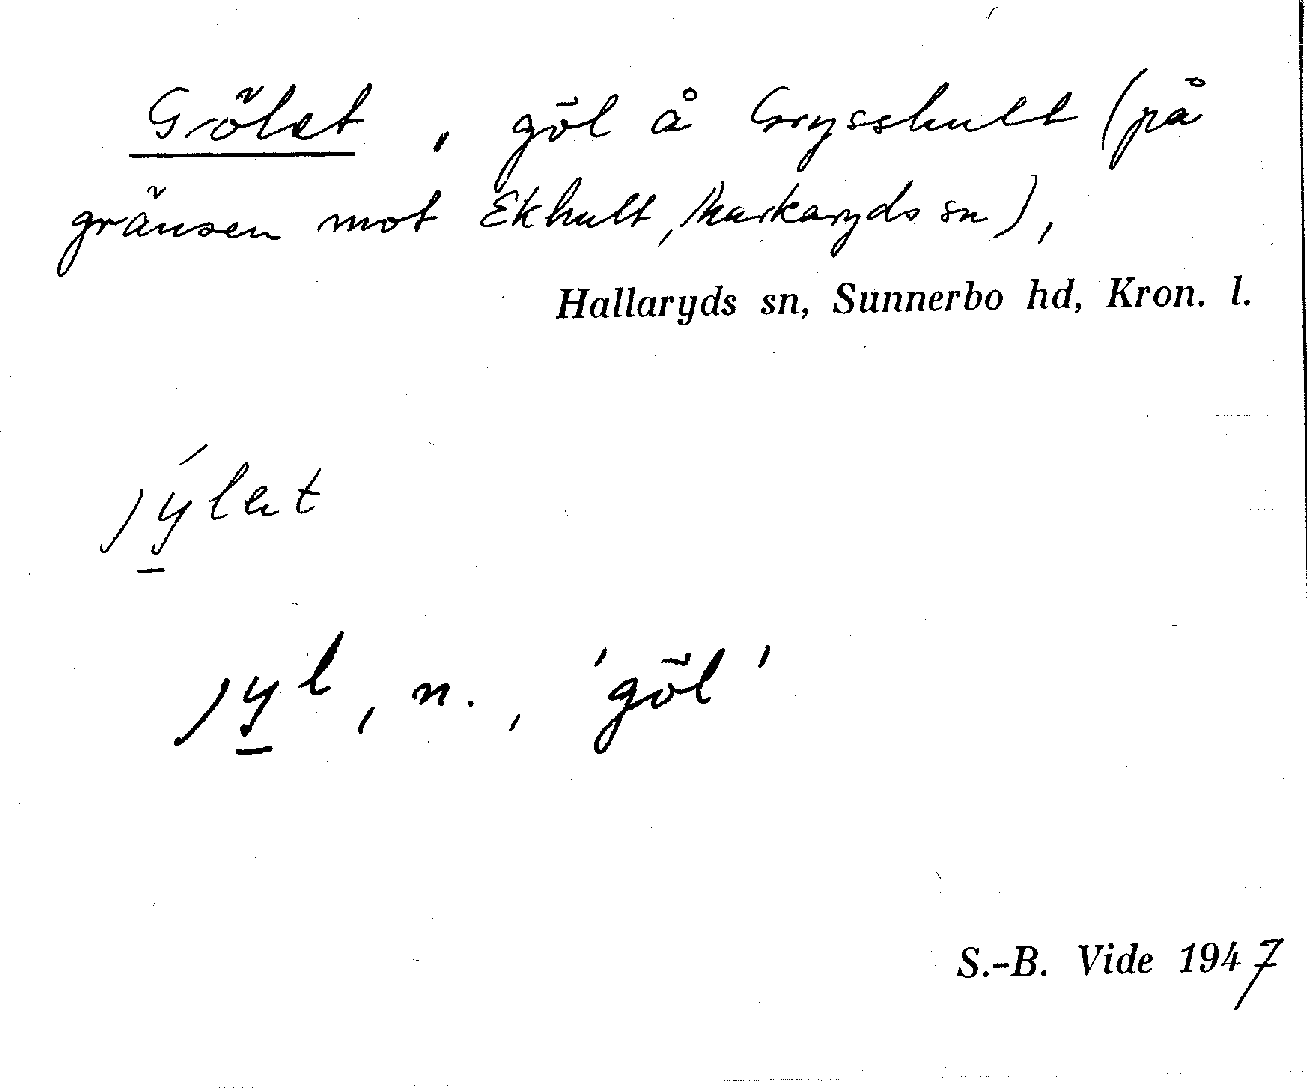 Gölet, göl å Grysshult (på
gränsen mot Ekhult, Markaryds sn),
Hallaryds sn, Sunnerbo hd, Kron. l.
jýlət
jyl, n., 'göl'
S.-B. Vide 1947